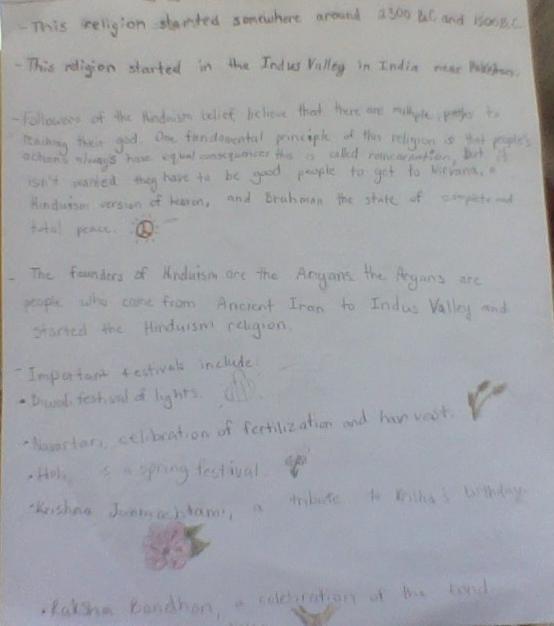 - This religion started somewhere around 2300 B.C and 1500 B.C.
- This religion started in the Indus Valley in India near Pakistan.
- Followers of the Hinduism belief believe that there are multiple paths to
reaching their god. One fundamental principle of this religion is that people's
actions always have equal consequences this is called reincarnation, but it
isn't wanted they have to be good people to get to Nirvana, a
Hinduism version of heaven, and Brahman the state of complete and
total peace.
- The founders of Hinduism are the Aryans the Aryans are
people who came from Ancient Iran to Indus Valley and
started the Hinduism religion.
- Important festivals include:
• Diwali festival of lights.
• Navartari, celibration of fertilization and harvest.
• Holi, is a spring festival.
• Krishna Janmashtami, a tribute to birthday.
• Raksha Bandhan, a celebration of the bond